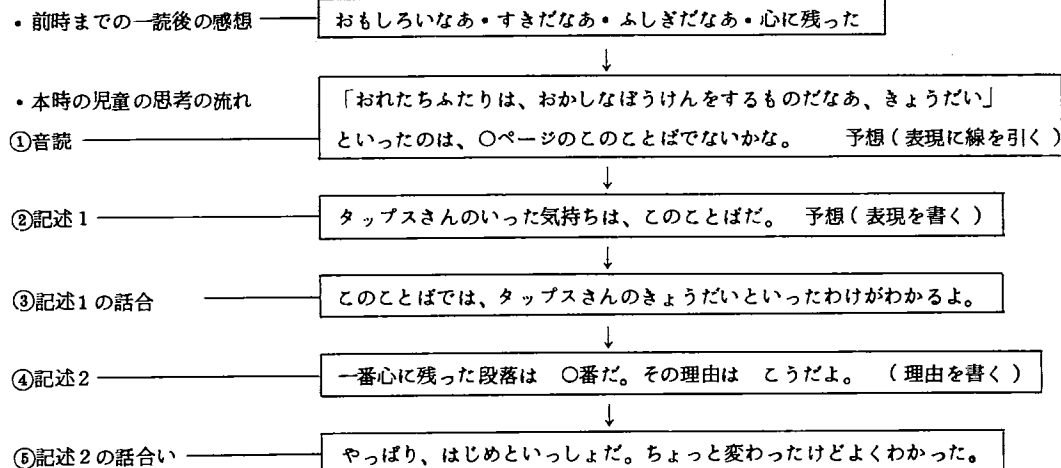 ・前時までの一読後の感想 おもしろいなあ・すきだなあ・ふしぎだなあ・心に残った
↓
・本時の児童の思考の流れ 「おれたちふたりは、おかしなぼうけんをするものだなあ、きょうだい」
①音読 といったのは、○ページのこのことばでないかな。 予想(表現に線を引く)
↓
②記述1 タップスさんのいった気持ちは、このことばだ。 予想(表現を書く)
↓
③記述1の話合 このことばでは、タップスさんのきょうだいといったわけがわかるよ。
↓
④記述2 一番心に残った段落は ○番だ。その理由は こうだよ。 (理由を書く)
↓
⑤記述2の話合い やっぱり、はじめといっしょだ。ちょっと変わったけどよくわかった。